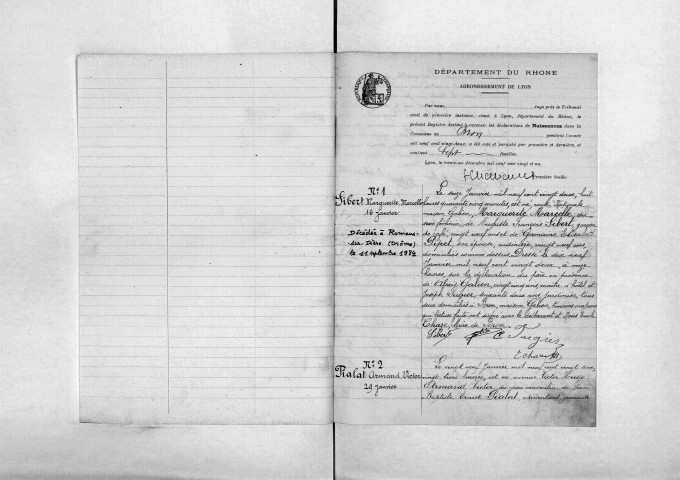 DÉPARTEMENT DU RHONE
ARRONDISSEMENT DE LYON
Par nous Juge près le Tribunal
civil de première instance, séant à Lyon, département du Rhône, le
présent Registre destiné à recevoir les déclarations de Naissances dans la
Commune de Bron pendant l'année
mil neuf cent vingt-deux, a été coté et paraphé par première et dernière, et
contient Sept feuillets.
Lyon, le trentième décembre mil neuf cent vingt et un.
Première feuille
N° 1
Sibert Marguerite Marcelle
16 janvier
Décédée à Romans-
sur-Isère (Drôme)
le 11 septembre 1984
Le seize Janvier mil neuf cent vingt deux, huit
heures quarante cinq minutes, est née, route
maison Galien, Marguerite Marcelle, du
sexe féminin, de Auguste François Sibert, garçon
de café, vingt neuf ans et de Germaine
son épouse, vingt neuf ans,
domiciliés comme dessus. Dressé le dix neuf
Janvier mil neuf cent vingt deux, à onze
heures, sur la déclaration du père en présence
de Galien, vingt cinq ans, maître d'hôtel et
Joseph soixante deux ans, jardinier, tous
deux domiciliés à Bron, maison Galien, témoins majeurs
qui lecture faite ont signé avec le déclarant et Nous
maire de Bron
Sibert
N° 2
Pialat Armand, Victor
29 janvier
Le vingt neuf Janvier mil neuf cent vingt deux,
vingt trois heures, est né avenue Victor Hugo
Armand Victor du sexe masculin de Jean
Baptiste Ernest Pialat, quarante